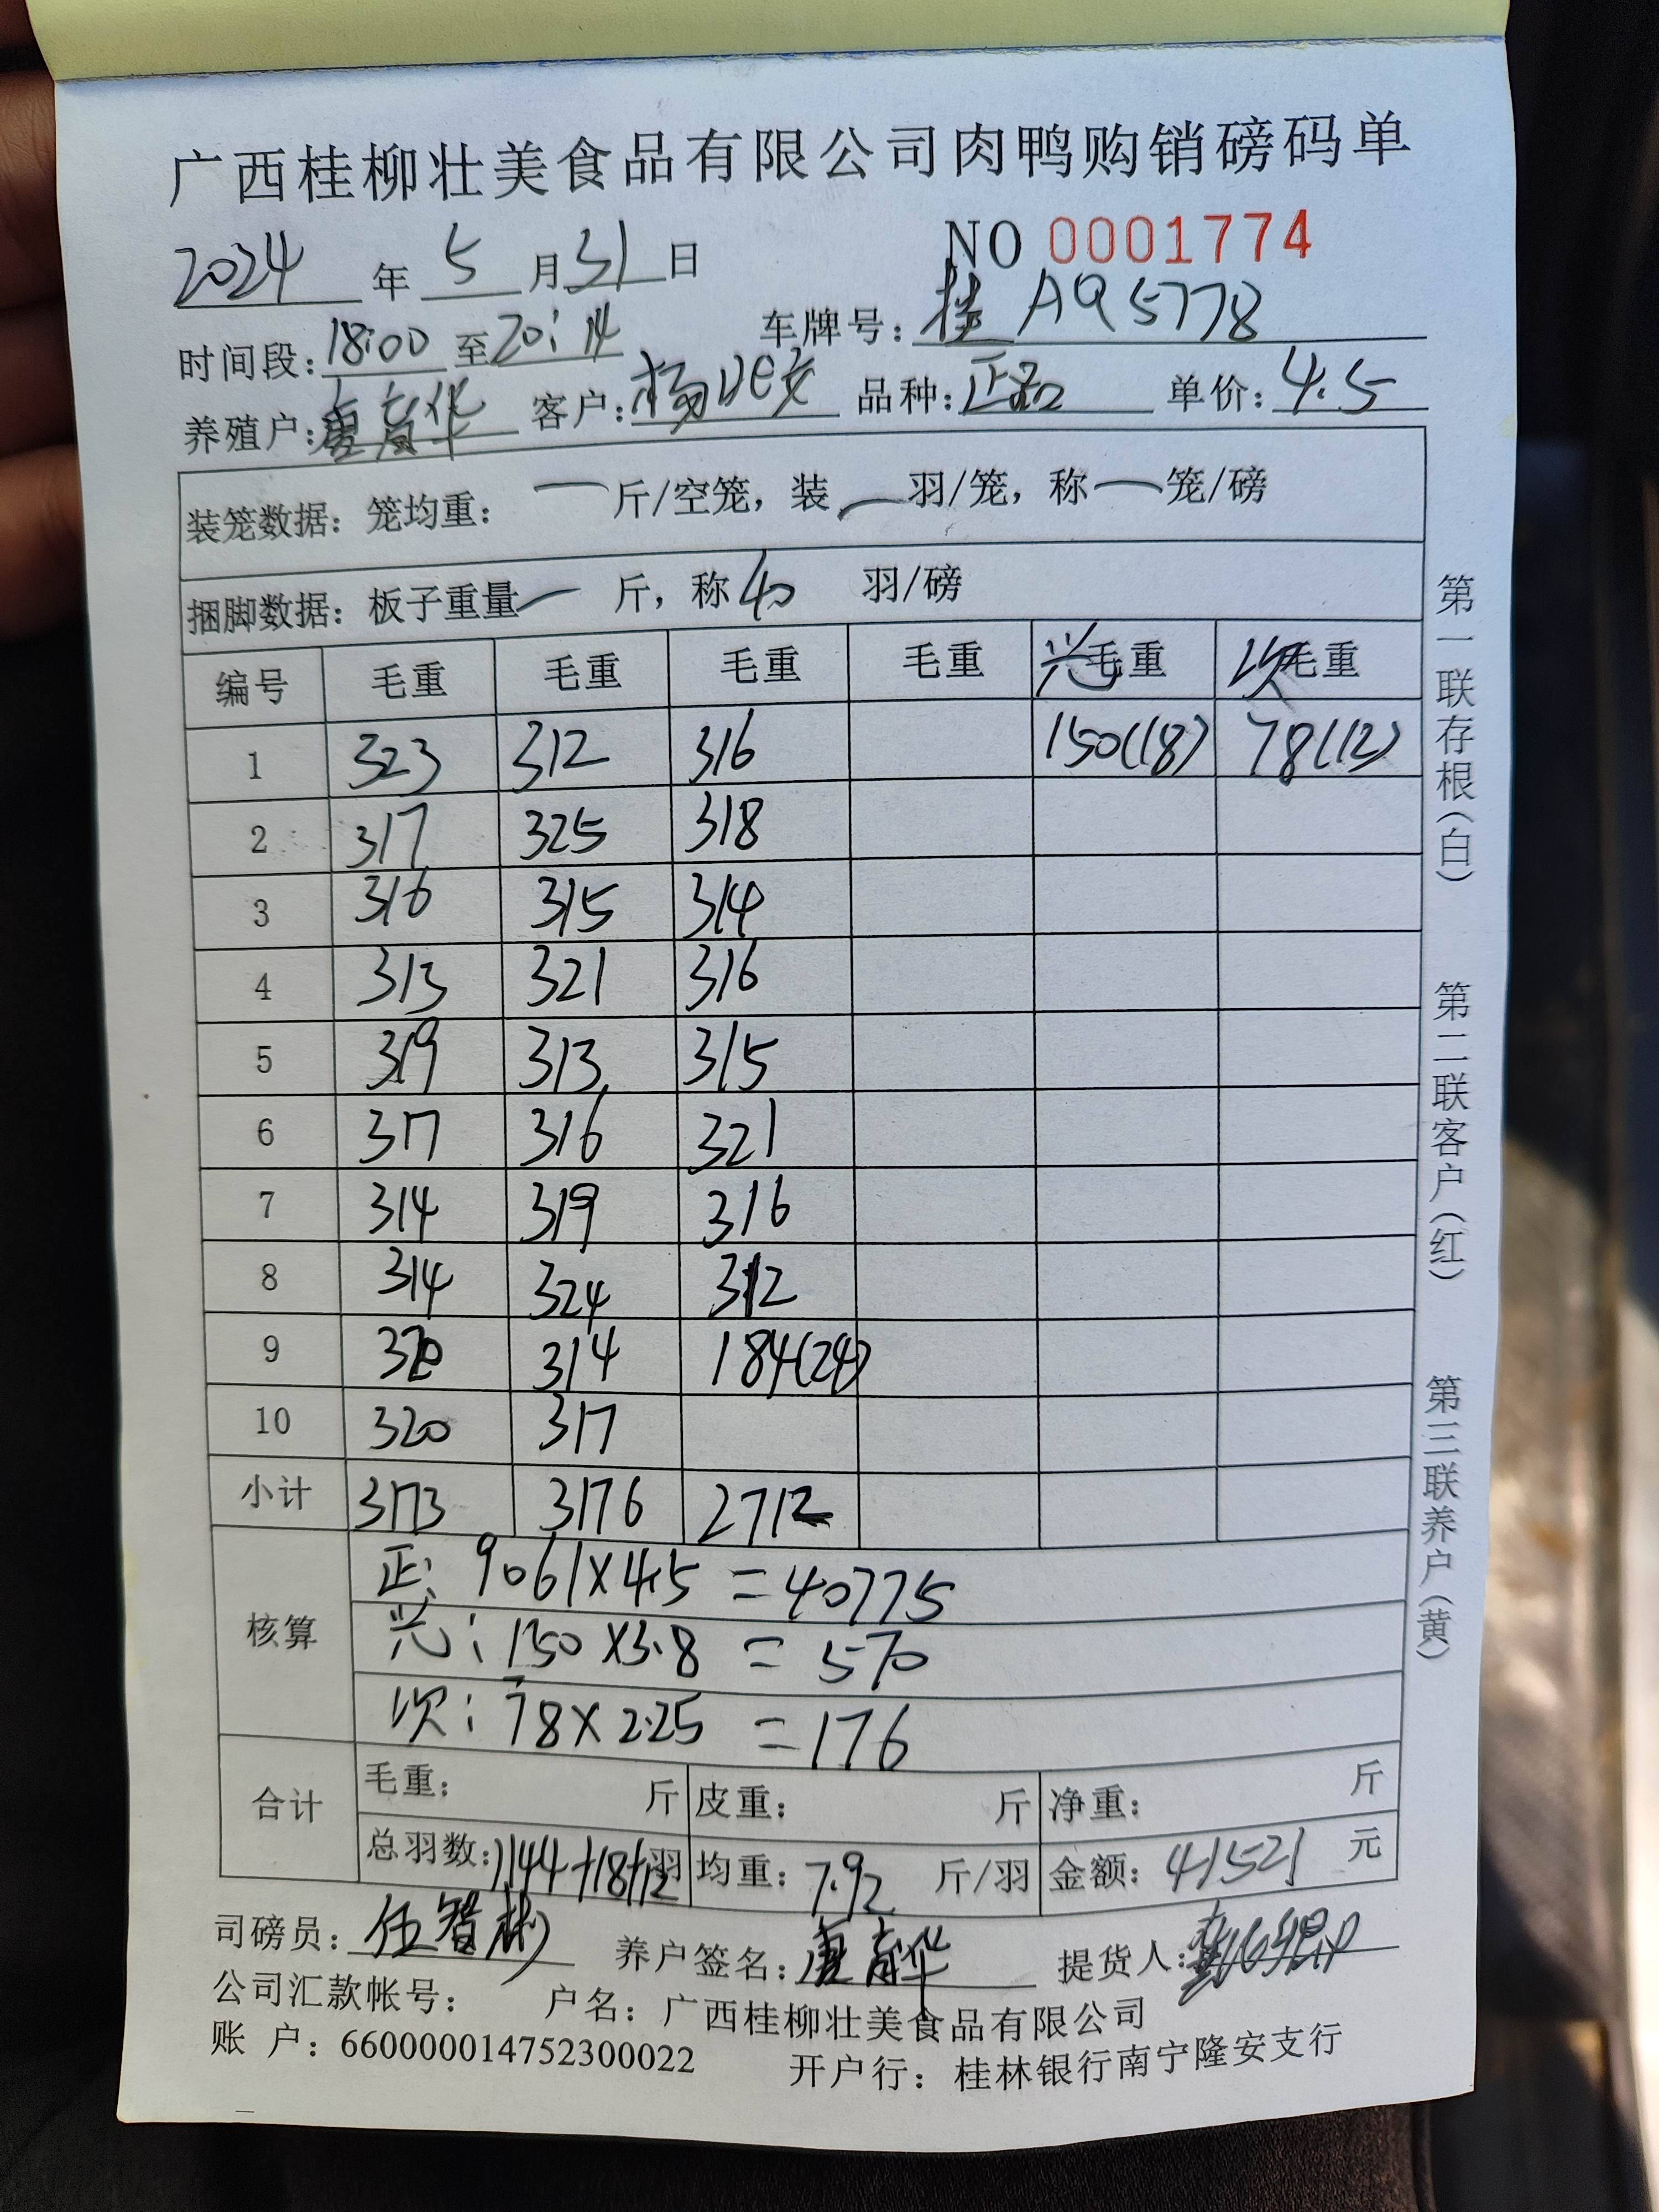 广西桂柳壮美食品有限公司肉鸭购销磅码单
2024年5月31日 NO 0001774
时间段:18:00至20:14 车牌号:桂AQ5778
养殖户:唐育华 客户:杨 品种:正品 单价:4.5
装笼数据:笼均重:一斤/空笼,装一羽/笼,称一笼/磅
捆脚数据:板子重量一斤,称40羽/磅
编号 毛重 毛重 毛重 毛重 毛重 次毛重
1 323 312 316 150(18) 78(12)
2 317 325 318
3 316 315 314
4 313 321 316
5 319 313 315
6 317 316 321
7 314 319 316
8 314 324 312
9 320 314 184(24)
10 320 317
小计 3173 3176 2712
核算 正: 9061×4.5=40775
: 150×3.8=570
次: 78×2.25=176
合计 毛重: 斤 皮重: 斤 净重: 斤
总羽数:1144+18+12羽 均重:7.92斤/羽 金额:41521元
司磅员:伍智彬 养户签名:唐育华 提货人:
公司汇款帐号: 户名:广西桂柳壮美食品有限公司
账 户:660000014752300022 开户行:桂林银行南宁隆安支行
第一联存根(白) 第二联客户(红) 第三联养户(黄)